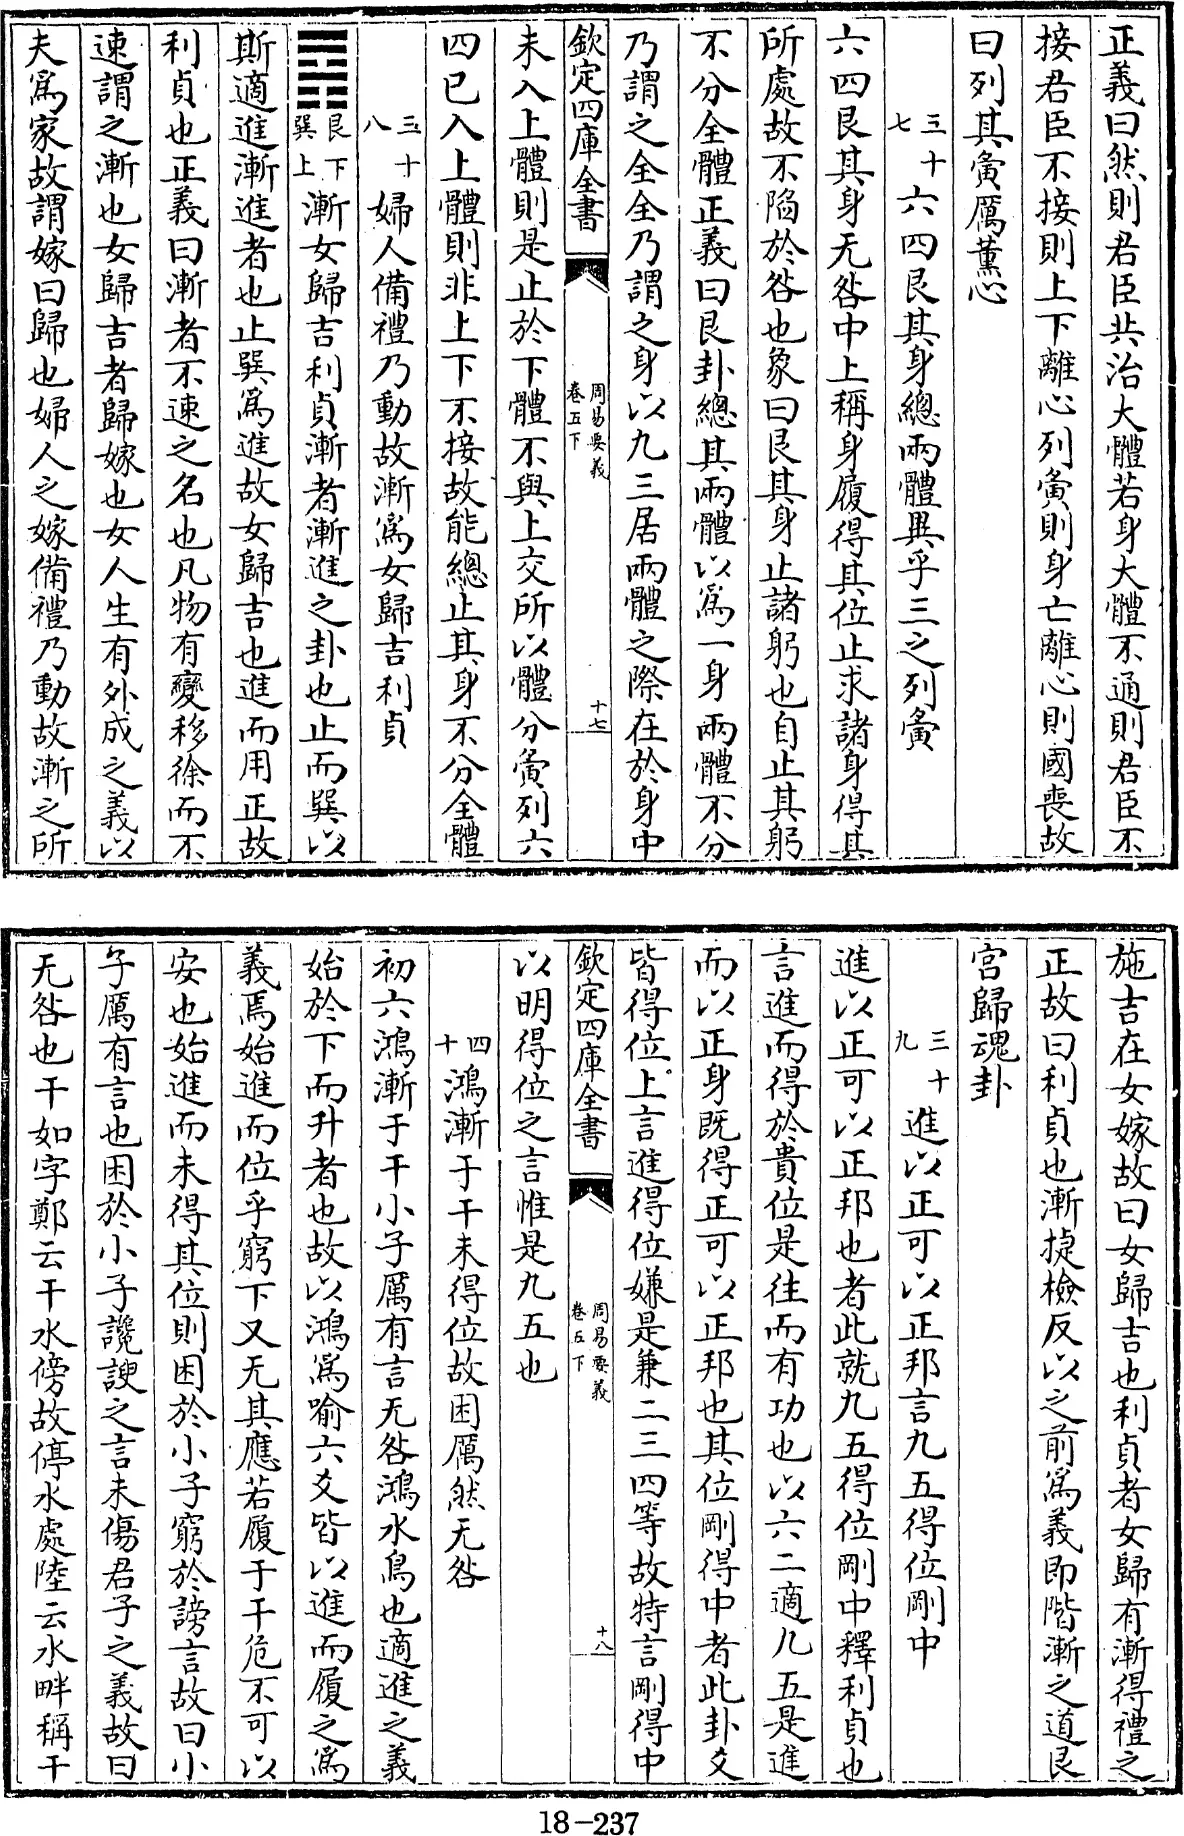 正義曰然則君臣共治大體若身大體不通則君臣不
接君臣不接則上下離心列夤則身亡離心則國喪故
曰列其夤厲薰心
三十七 六四艮其身總兩體異乎三之列夤
六四艮其身无咎中上稱身履得其位止求諸身得其
所處故不陷於咎也象曰艮其身止諸躬也自止其躬
不分全體正義曰艮卦總其兩體以爲一身兩體不分
乃謂之全全乃謂之身以九三居兩體之際在於身中
欽定四庫全書 周易要義 卷五下 十七
未入上體則是止於下體不與上交所以體分夤列六
四已入上體則非上下不接故能總止其身不分全體
三十八 婦人備禮乃動故漸爲女歸吉利貞
䷴艮下巽上 漸女歸吉利貞漸者漸進之卦也止而巽以
斯適進漸進者也止巽爲進故女歸吉也進而用正故
利貞也正義曰漸者不速之名也凡物有變移徐而不
速謂之漸也女歸吉者歸嫁也女人生有外成之義以
夫爲家故謂嫁曰歸也婦人之嫁備禮乃動故漸之所
施吉在女嫁故曰女歸吉也利貞者女歸有漸得禮之
正故曰利貞也漸捷檢反以之前爲義即階漸之道艮
宮歸魂卦
三十九 進以正可以正邦言九五得位剛中
進以正可以正邦也者此就九五得位剛中釋利貞也
言進而得於貴位是往而有功也以六二適九五是進
而以正身既得正可以正邦也其位剛得中者此卦爻
皆得位上言進得位嫌是兼二三四等故特言剛得中
欽定四庫全書 周易要義 卷五下 十八
以明得位之言惟是九五也
四十 鴻漸于干未得位故困厲然无咎
初六鴻漸于干小子厲有言无咎鴻水鳥也適進之義
始於下而升者也故以鴻爲喻六爻皆以進而履之爲
義焉始進而位乎窮下又无其應若履于干危不可以
安也始進而未得其位則困於小子窮於謗言故曰小
子厲有言也困於小子讒諛之言未傷君子之義故曰
无咎也干如字鄭云干水傍故停水處陸云水畔稱干
18-237